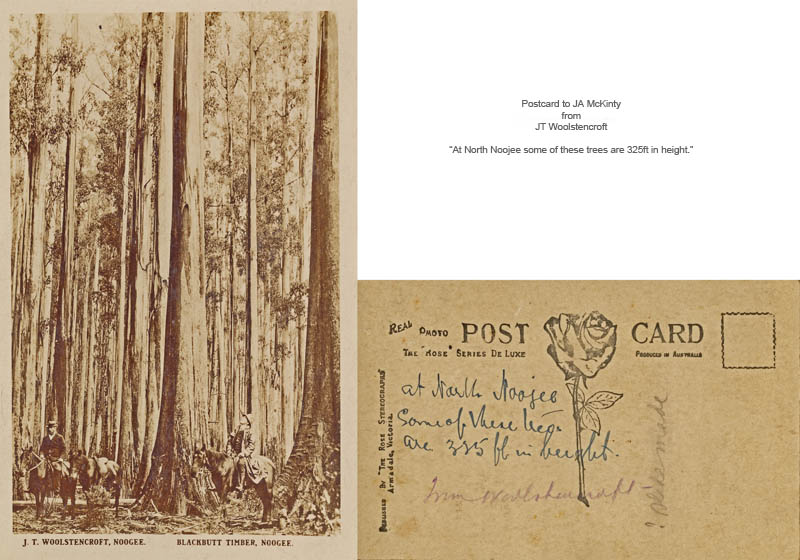 J. T. WOOLSTENCROFT, NOOGEE. BLACKBUTT TIMBER, NOOGEE.
Postcard to JA McKinty
from
JT Woolstencroft
"At North Noojee some of these trees are 325ft in height."
REAL PHOTO POST CARD
THE "ROSE" SERIES DE LUXE PRODUCED IN AUSTRALIA
PUBLISHED BY "THE ROSE STEREOGRAPHS"
Armadale, Victoria.
at North Noojee
Some of these trees
are 325 ft in height.
from Woolstencroft
made